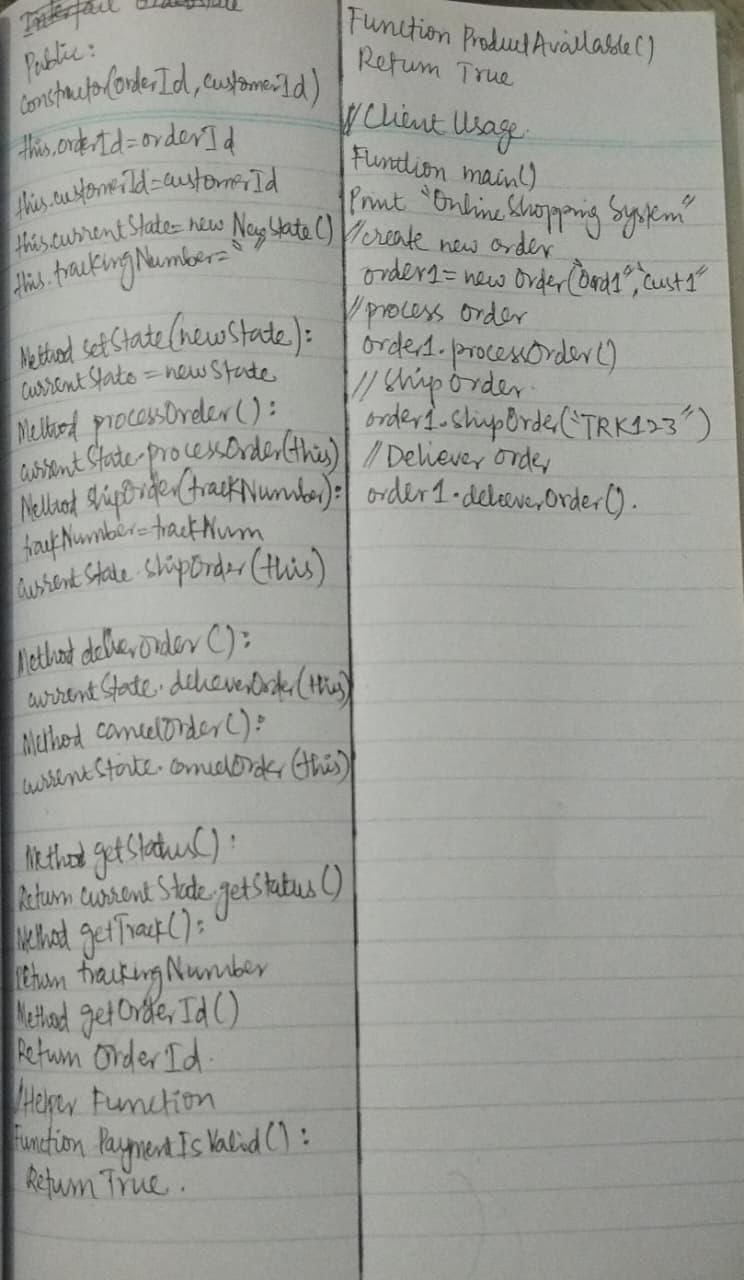 Public:
Constructor(orderId, customerId)
this.orderId=orderId
this.customerId=customerId
this.currentState=new NewState()
this.trackingNumber=""
Method setState(newState):
currentState=newState
Method processOrder():
currentState.processOrder(this)
Method shipOrder(trackNumber):
trackNumber=trackNum
currentState.shipOrder(this)
Method deliverorder():
currentState.delieverOrder(this)
Method cancelOrder():
currentState.cancelOrder(this)
Method getStatus():
Return currentState.getStatus()
Method getTrack():
return trackingNumber
Method getOrderId()
Return OrderId.
/Helper Function
Function PaymentIsValid():
Return True.
Function ProductAvailable()
Return True
//Client Usage.
Function main()
Print "Online Shopping System"
//create new order
order1=new Order("Ord1","cust1"
//process order
order1.processOrder()
//Ship Order.
order1.ShipOrder("TRK123")
//Deliever order
order1.delieverOrder().